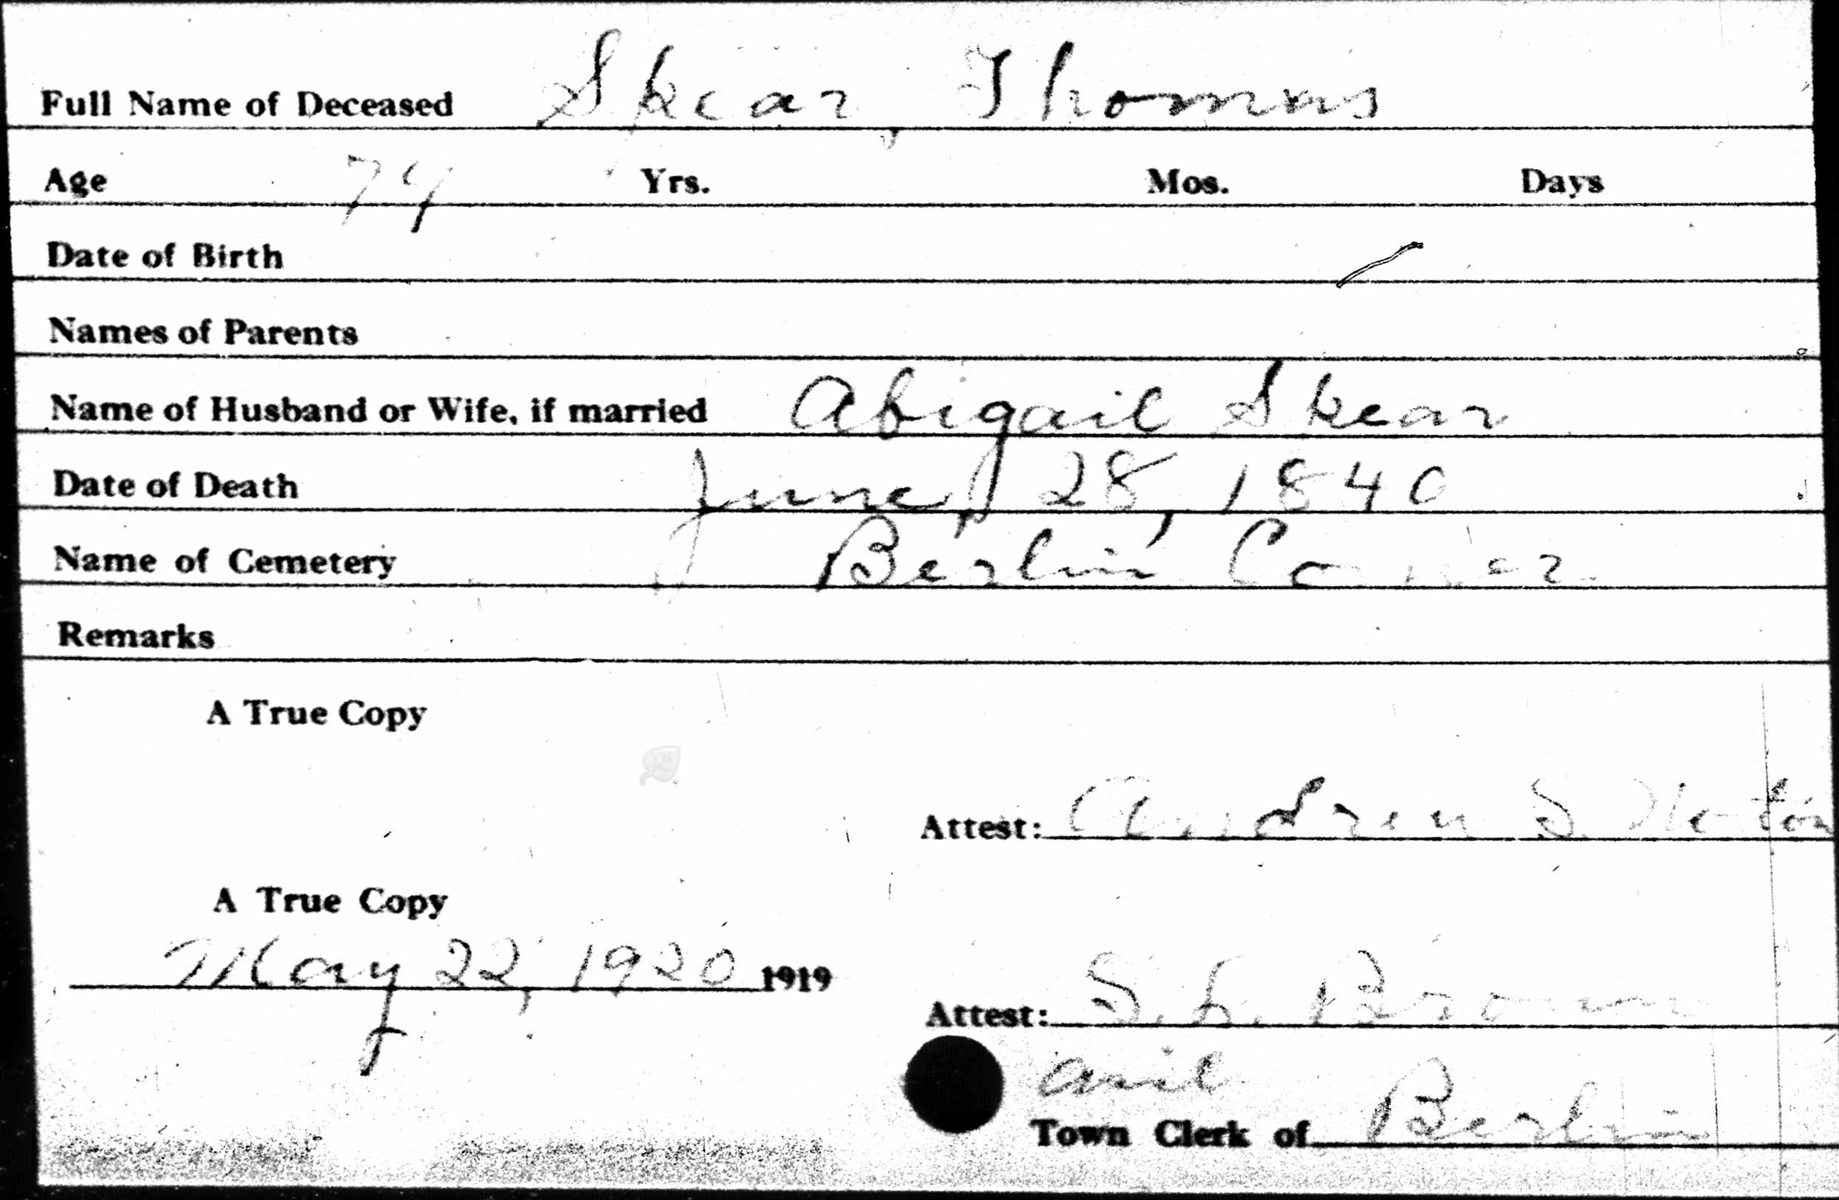 Full Name of Deceased Skear, Thomas
Age 74 Yrs. Mos. Days
Date of Birth
Names of Parents
Name of Husband or Wife, if married Abigail Skear
Date of Death June, 28, 1840
Name of Cemetery Berlin Corner
Remarks
A True Copy
Attest: Andrew S.
A True Copy
May 22, 1920 1919
Attest: S. L. Brown
Town Clerk of Berlin